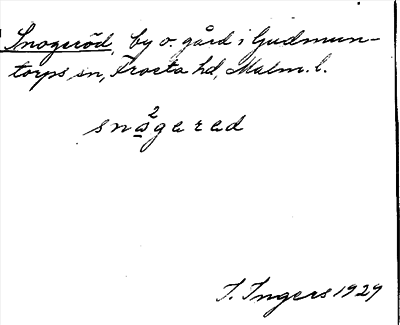 Snogeröd, by o. gård i Gudmun-
torps sn, Frosta hd, Malm. l.
2
snågerad
I. Ingers 1929